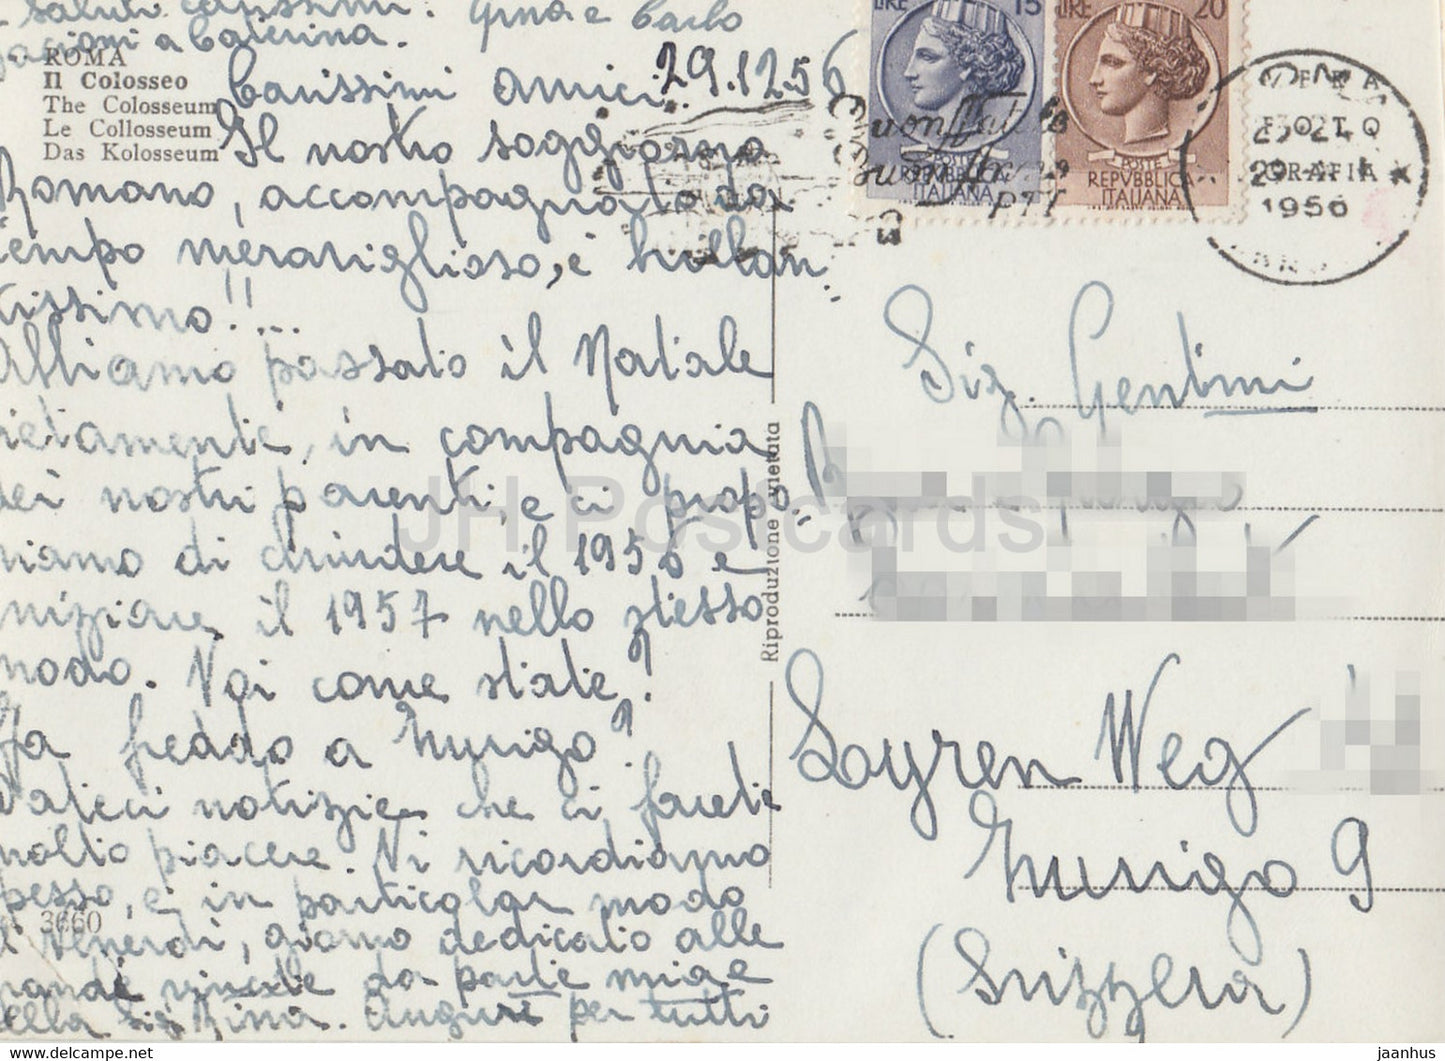 saluti carissimi. Gina e Carlo
a Caterina.
ROMA
Il Colosseo
The Colosseum
Le Collosseum
Das Kolosseum
29.12.56
Carissimi amici.
Il nostro soggiorno
Romano, accompagnato da
tempo meraviglioso, è brillan
tissimo!!...
Abbiamo passato il Natale
lietamente, in compagnia
dei nostri parenti, e ci propo
niamo di chiudere il 1956 e
iniziare il 1957 nello stesso
modo. Voi come state?
Fa freddo a Zurigo?
Dateci notizie che ci farete
molto piacere. Vi ricordiamo
spesso, e in particolar modo
il Venerdì, giorno dedicato alle
grandi vincite da parte mia e
della Sig. Rina. Auguri per tutti
3660
Riproduzione vietata
LIRE 15
POSTE
REPVBBLICA
ITALIANA
LIRE 20
POSTE
REPVBBLICA
ITALIANA
Buon Natale
Buon Anno
PTT
ROMA
FERR
23-24
1956
Sig. Gentimi
Soyren Weg
Zurigo 9
(Svizzera)
JH Postcards
www.delcampe.net
jaanhus